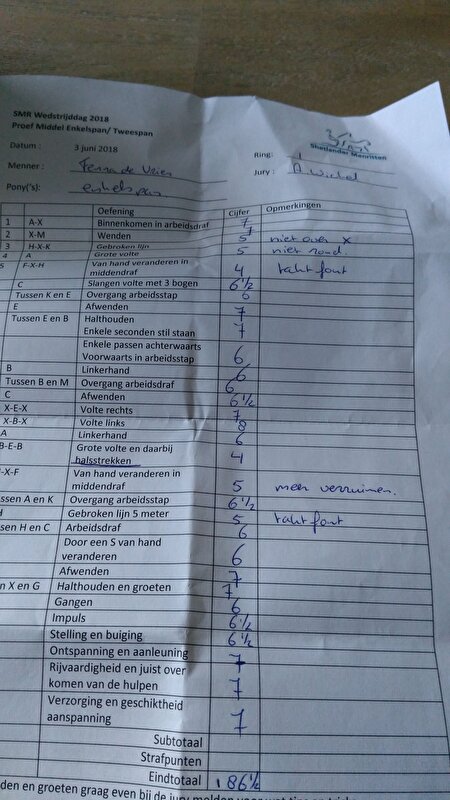 SMR Wedstrijddag 2018
Proef Middel Enkelspan/ Tweespan
Datum : 3 juni 2018
Ring: 1
Shetlander Menristen
Menner : de Vries
Jury : A.
Pony('s): enkelspan
Oefening Cijfer Opmerkingen
1 A-X Binnenkomen in arbeidsdraf 7
2 X-M Wenden 7
3 H-X-K Gebroken lijn 5 niet over X
4 A Grote volte 5 niet rond.
5 F-X-H Van hand veranderen in
middendraf 4 takt fout
C Slangen volte met 3 bogen 6 1/2
Tussen K en E Overgang arbeidsstap 6
E Afwenden 7
Tussen E en B Halthouden 7
Enkele seconden stil staan
Enkele passen achterwaarts
Voorwaarts in arbeidsstap 6
B Linkerhand 6
Tussen B en M Overgang arbeidsdraf 6
C Afwenden 6 1/2
X-E-X Volte rechts 7
X-B-X Volte links 8
A Linkerhand 6
B-E-B Grote volte en daarbij
halsstrekken 4
-X-F Van hand veranderen in
middendraf 5 meer verruimen.
ssen A en K Overgang arbeidsstap 6 1/2
Gebroken lijn 5 meter 5 takt fout
sen H en C Arbeidsdraf 6
Door een S van hand
veranderen 6
Afwenden 7
n X en G Halthouden en groeten 7
Gangen 6
Impuls 6 1/2
Stelling en buiging 6 1/2
Ontspanning en aanleuning 7
Rijvaardigheid en juist over
komen van de hulpen 7
Verzorging en geschiktheid
aanspanning 7
Subtotaal
Strafpunten
Eindtotaal 186 1/2
den en groeten graag even bij de jury melden voor